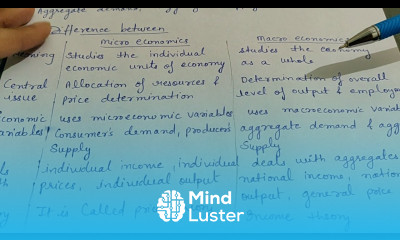 Aggregate demand,
Difference between
micro economics | macro economics
Studies the individual | studies the economy
economic units of economy | as a whole
Central | Allocation of resources & | Determination of overall
issue | price determination | level of output &
uses microeconomic variables | uses macroeconomic
Consumer's demand, producer's | aggregate demand &
Supply | Supply
individual income, individual | deals with aggregates
prices, individual output | national income,
output, general price
It is Called | theory
Mind
Luster